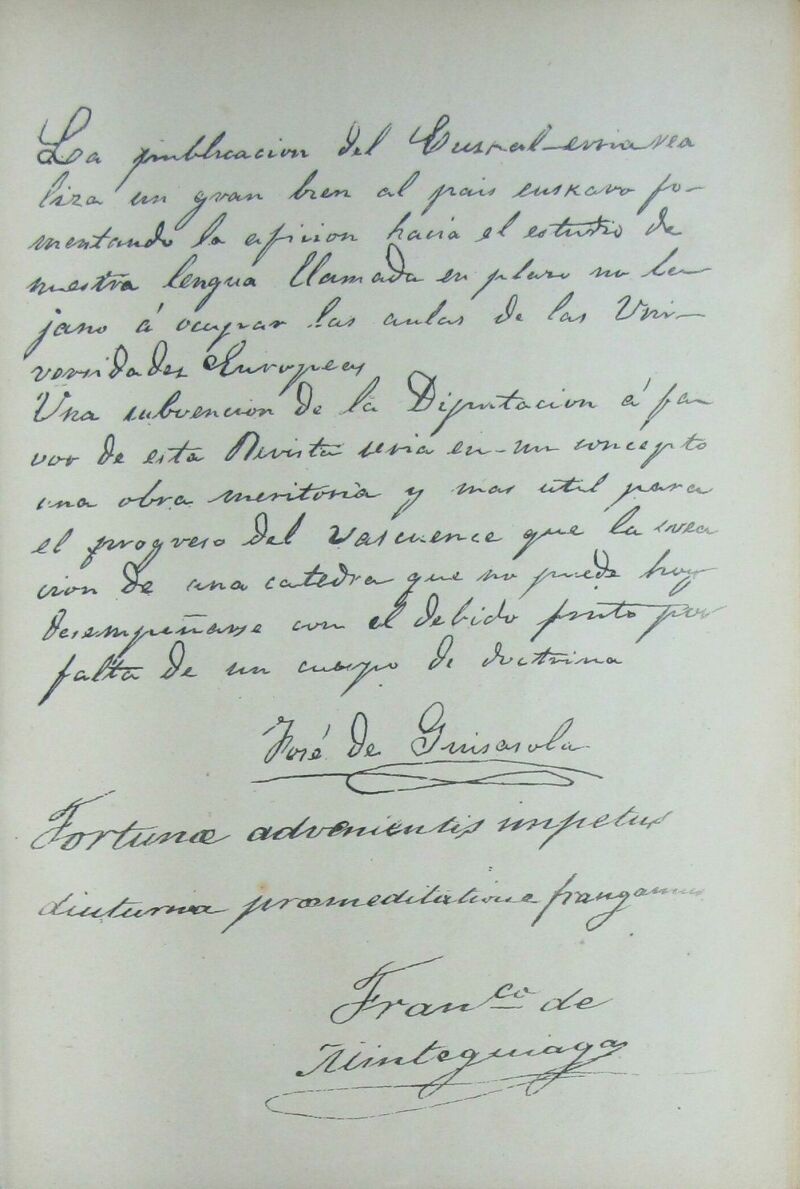 La publicacion del Euskal-erria rea
liza un gran bien al pais euskaro fo-
mentando la aficion hacia el estudio de
nuestra lengua llamada en plazo no le-
jano á ocupar las aulas de las Uni-
versidades Européas
Una subvencion de la Diputacion á fa-
vor de esta Revista seria en-mi concepto
una obra meritoria y mas util para
el progreso del vascuence que la crea
cion de una catedra que no puede hoy
desempeñarse con el debido fruto por
falta de un cuerpo de doctrina
José de Guisasola
Fortunæ advenientis impetus
diuturna præmeditatione frangamus
Fran.co de
Minteguiaga